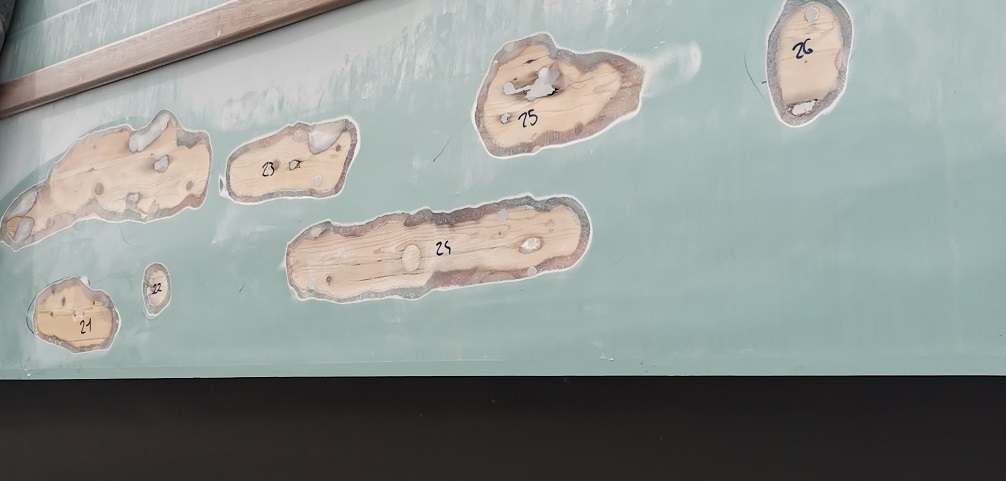 26
25
23
24
22
21